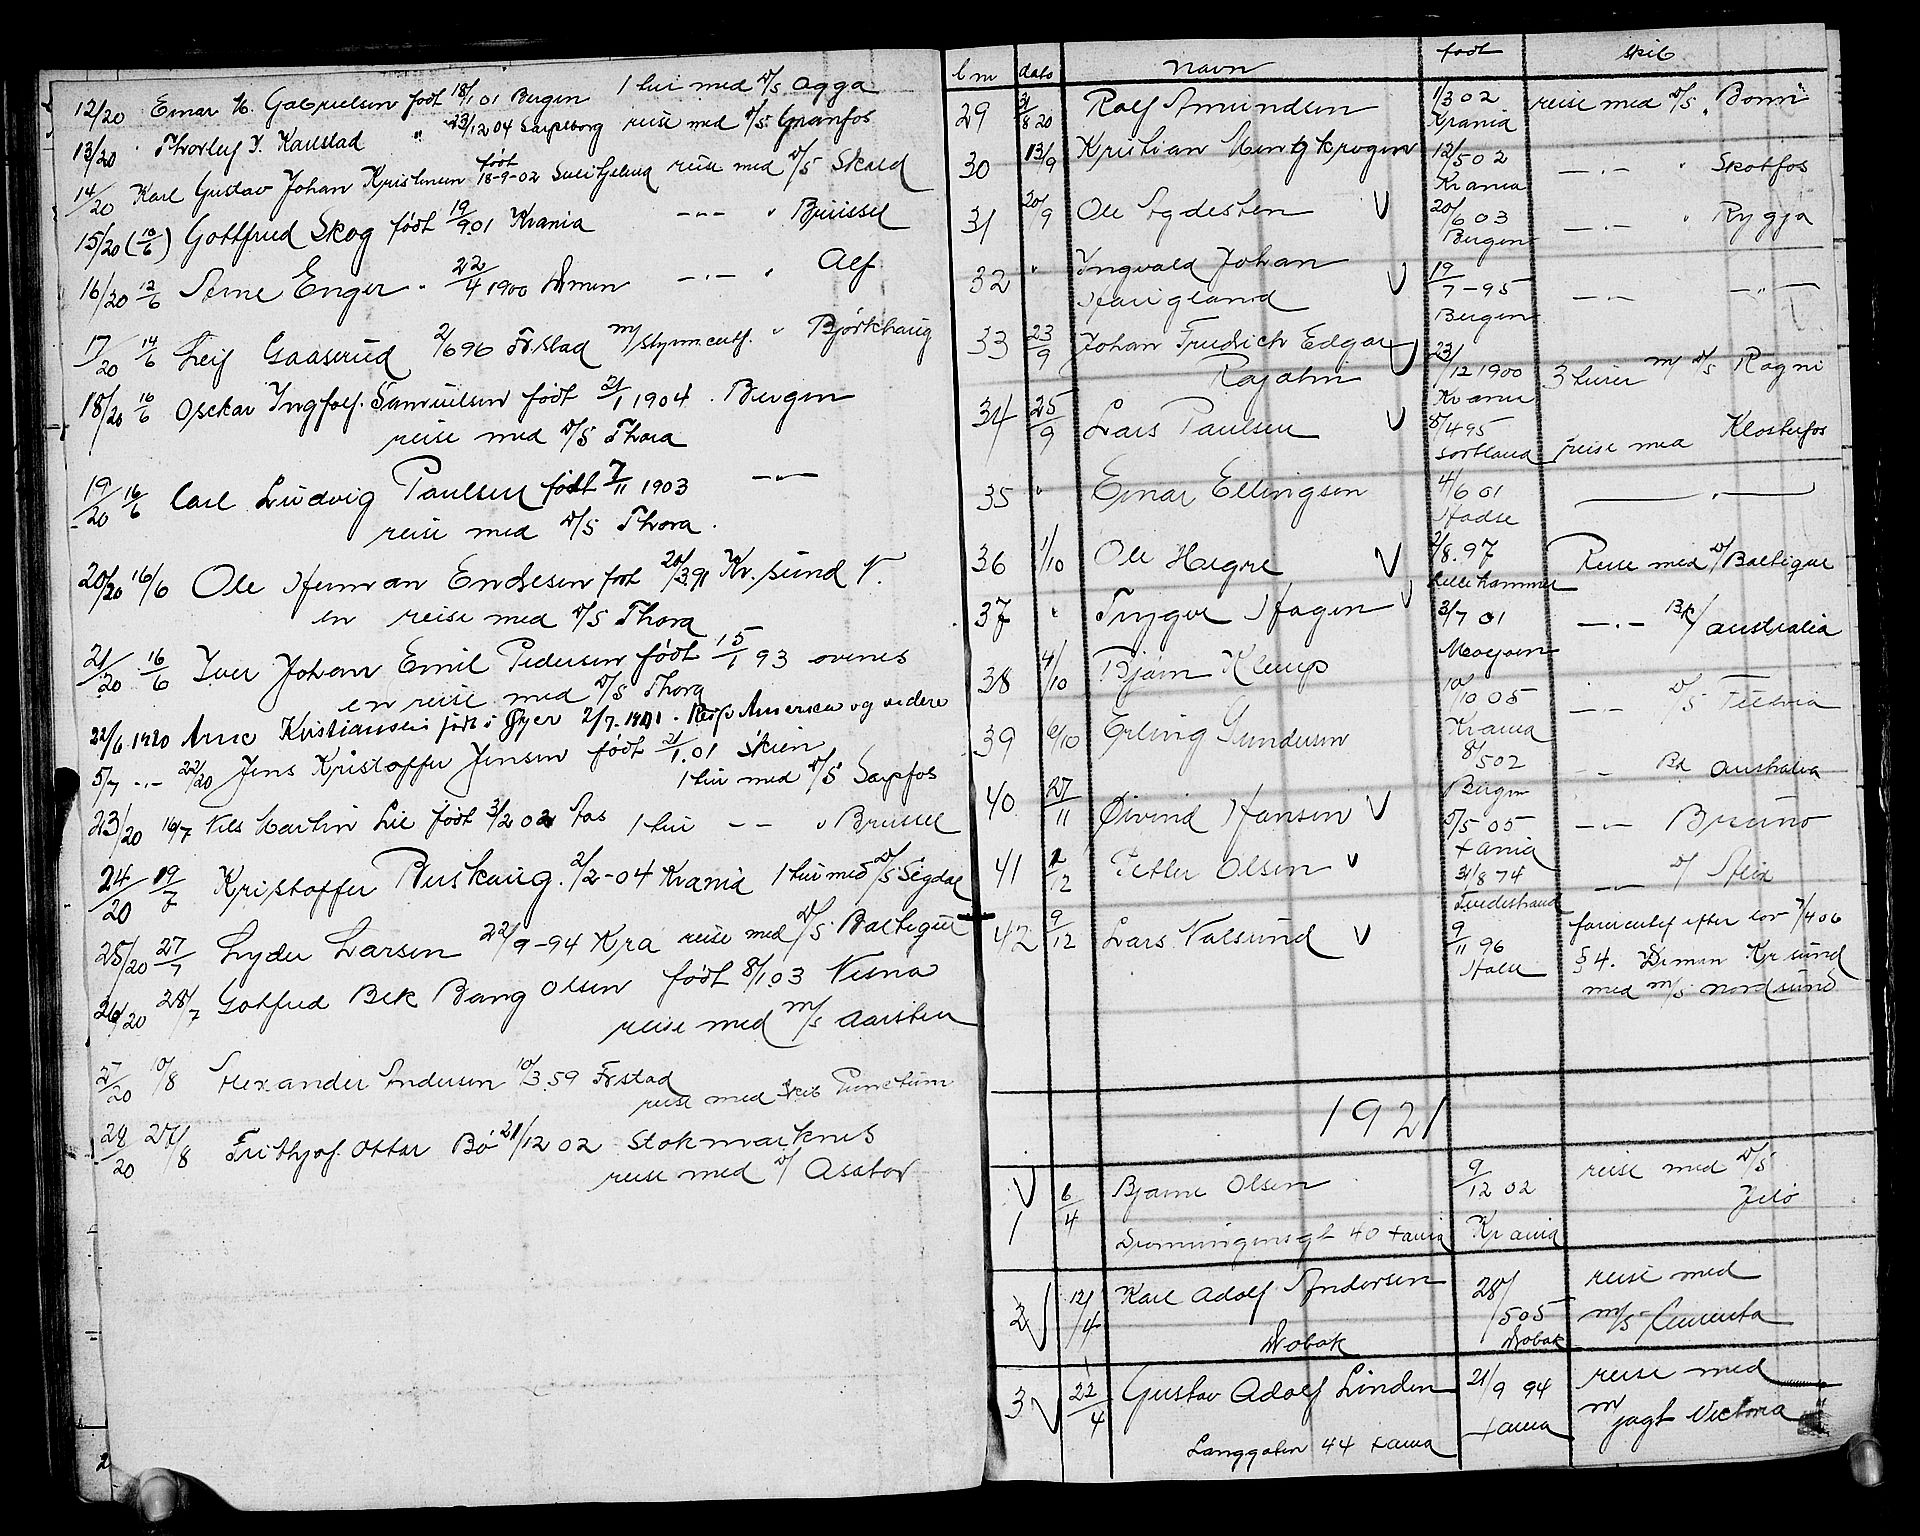 12/20 Einar M. Gabrielsen født 18/1 01 Bergen 1 tur med D/S Agga
13/20 Thorleif V. Karlstad " 23/12 04 Sarpsborg reise med D/S Granfos
14/20 Karl Gustav Johan Kristensen født 18-9-02 reise med D/S Skald
15/20 (10/6) Gottfred Skog født 19/9 01 Krania -"- " Brüssel
16/20 12/6 Arne Enger " 22/4 1900 Dr̄men -"- " Alf
17/20 14/6 Leif Gaaserud 2/6 96 Frstad m/styrmcertf. " Bjørkhaug
18/20 16/6 Osckar Ingfolf Samuelsen født 21/1 1904 Bergen
reise med D/S Thora
19/20 16/6 Carl Ludvig Paulsen født 7/11 1903 -"-
reise med D/S Thora.
20/20 16/6 Ole Herman Endresen født 20/3 91 Kr. sund N.
en reise med D/S Thora
21/20 16/6 Iver Johan Emil Pedersen født 15/1 93
en reise med D/S Thora
22/6 1920 Arne Kristiansen født i Øyer 2/7-1901. Reise America og videre
5/7 -"- 22/20 Jens Kristoffer Jensen født 21/1 01 Skien
1 tur med D/S Sarpfos
23/20 16/7 Nils Martin Lie født 3/2 02 Aas 1 tur -- " Brussel
24/20 19/7 Kristoffer Ruskaug 2/2-04 Krania 1 tur med D/S Sigdal
25/20 27/7 Lyder Larsen 22/9-94 Kra reise med D/S Baltique
26/20 28/7 Gotfred Bek Bang Olsen født 8/1 03 Nesna
reise med m/S Aarsten
27/20 10/8 Alexander Andersen 10/3 59 Frstad
reise med skib Punctum
28/20 27/8 Frithjof Ottar Bö 21/12 02 Stokmarknes
reise med D/ Asator
l nr dato navn født skib
29 31/8 20 Rolf Amundsen 1/3 02 Krania reise med D/S. Bonn
30 13/9 Kristian Muntzkrogen 12/5 02 Krania -"- " Skotfos
31 20/9 Ole Sydesten V 20/6 03 Bergen -"- " Rygja
32 " Ingvald Johan Haugland V 19/7-95 Bergen -"- -"-
33 23/9 Johan Fredrich Edgar Rojahn V 23/12 1900 Krania 3 turer m/ D/S Ragni
34 25/9 Lars Paulsen V 8/4 95 Sortland reise med Klosterfos
35 " Einar Ellingsen 4/6 01 Hadse —"—
36 1/10 Ole Hegre V 2/8.97 Lillehammer Reise med D/ Baltique
37 " Trygve Hagen V 3/7 01 Mosjøen -"- Bk/ Australia
38 4/10 Bjørn Klerup 10/10 05 Krania -"- D/S
39 6/10 Erling Gundersen 8/5 02 Bergen -"- Bk Australia
40 27/11 Øivind Hansen V 5/5 05 Xania -"- Bruno
41 2/12 Petter Olsen V 31/8 74 Tvedestrand -"- D/
42 9/12 Lars Valsund V 9/11 96 farercertf efter lov 7/4 06
§ 4. Kr sund
med m/S Nordsund
1921
V 1 6/4 Bjarne Olsen 9/12 02 reise med D/S
Dronningensgt 40 Xania Krania Jelö
2 V 12/4 Karl Adolf Andersen 28/5 05 reise med
Drøbak Drøbak m/S
3 V 22/4 Gustav Adolf Linden 21/9 94 reise med
Langgaten 44 Xania Xania m/ jagt Victoria